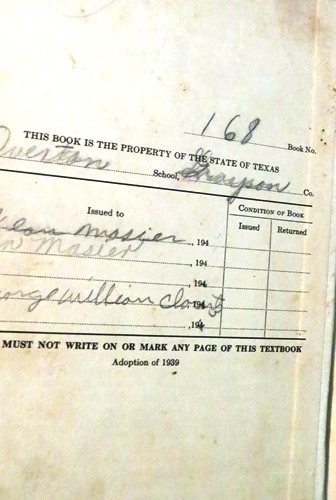 168 Book No.
THIS BOOK IS THE PROPERTY OF THE STATE OF TEXAS
Overton School, Grayson Co.
CONDITION OF BOOK
Issued to
Issued Returned
Masier, 194
n Masier, 194
, 194
orge William, 194
, 194
MUST NOT WRITE ON OR MARK ANY PAGE OF THIS TEXTBOOK
Adoption of 1939